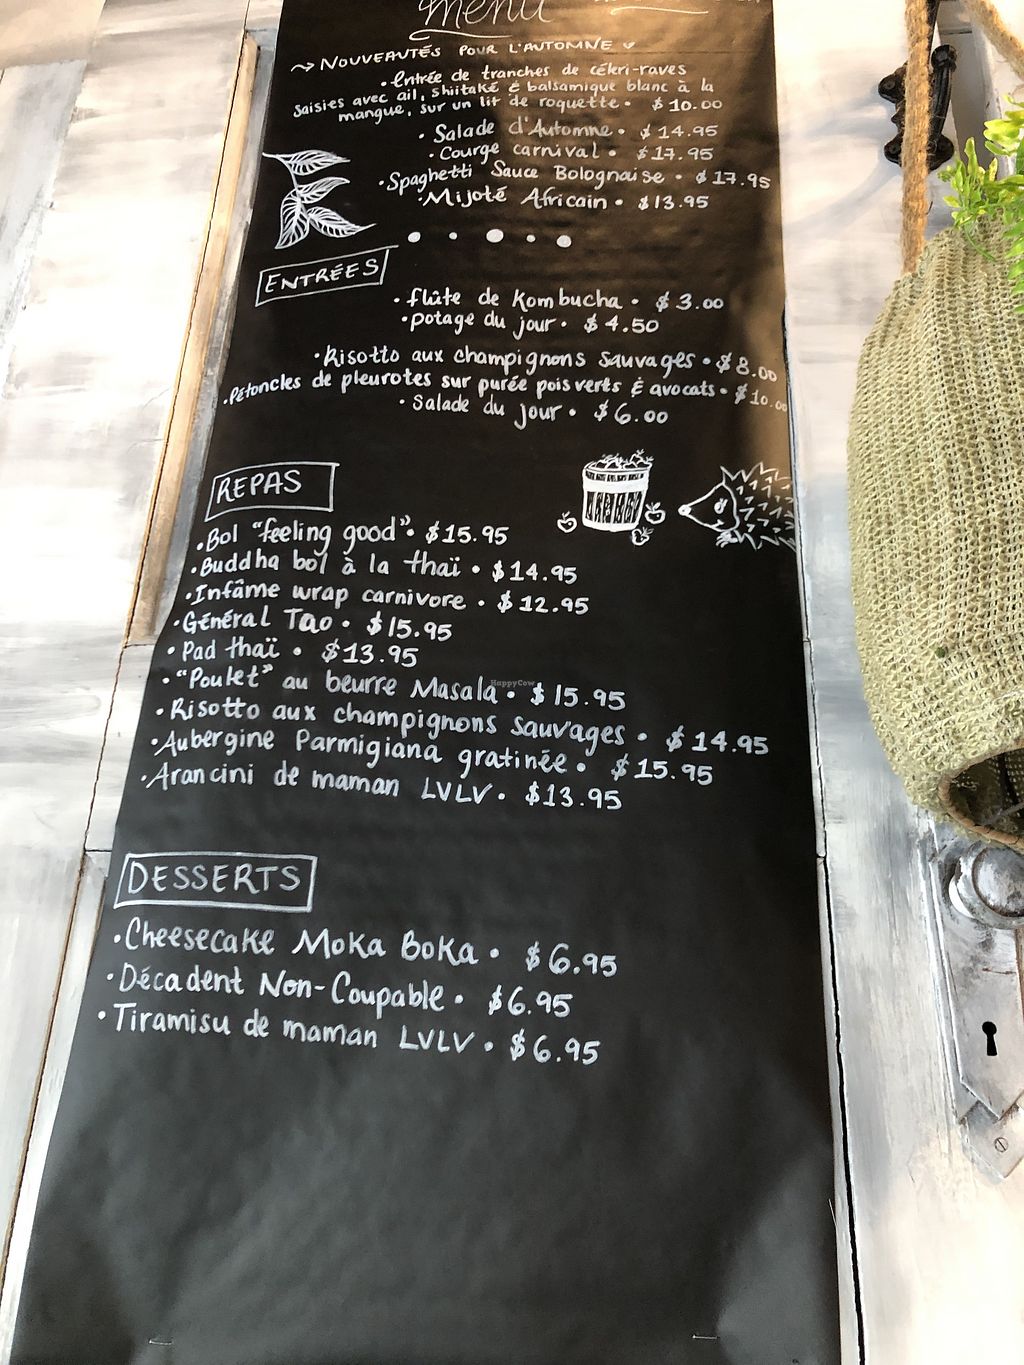 menu
~> NOUVEAUTÉS POUR L'AUTOMNE
• Entrée de tranches de céleri-raves
saisies avec ail, shiitaké & balsamique blanc à la
mangue, sur un lit de roquette • $10.00
• Salade d'Automne • $14.95
• Courge carnival • $17.95
• Spaghetti Sauce Bolognaise • $17.95
• Mijoté Africain • $13.95
ENTRÉES
• flûte de Kombucha • $3.00
• potage du jour • $4.50
• Risotto aux champignons sauvages • $8.00
• Pétoncles de pleurotes sur purée pois verts & avocats • $10.00
• Salade du jour • $6.00
REPAS
• Bol "feeling good" • $15.95
• Buddha bol à la thaï • $14.95
• Infâme wrap carnivore • $12.95
• Général Tao • $15.95
• Pad thaï • $13.95
• "Poulet" au beurre Masala • $15.95
• Risotto aux champignons sauvages • $14.95
• Aubergine Parmigiana gratinée • $15.95
• Arancini de maman LVLV • $13.95
DESSERTS
• Cheesecake Moka Boka • $6.95
• Décadent Non-Coupable • $6.95
• Tiramisu de maman LVLV • $6.95
HappyCow